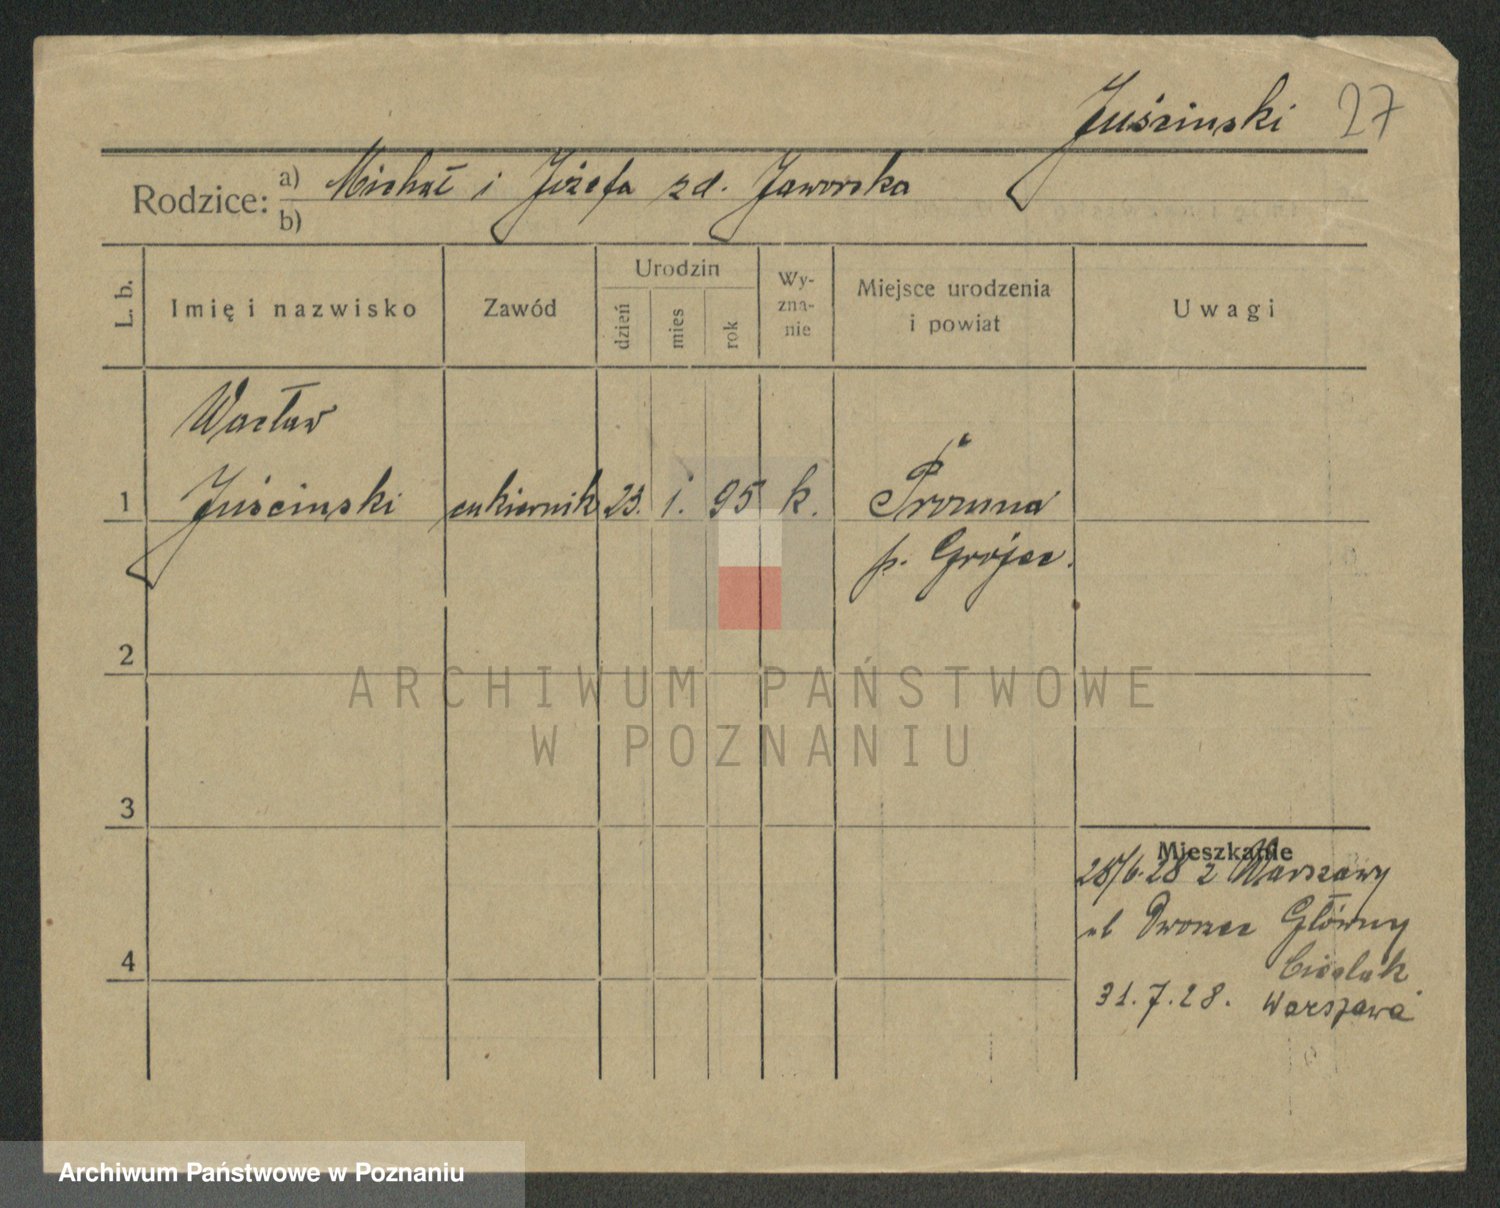 Juścinski 27
Rodzice: a) Michał i Józefa zd. Jaworska
b)
L. b. Imię i nazwisko Zawód Urodzin dzień mies rok Wy-zna-nie Miejsce urodzenia i powiat Uwagi
Wacław
1 Juścinski cukiernik 23. 1. 95 k. Promna
p. Grójec.
2
ARCHIWUM PAŃSTWOWE
W POZNANIU
3
Mieszkanie
28/6.28 z Warszawy
ul Dworzec Główny
4
31.7.28. Warszawa
Archiwum Państwowe w Poznaniu